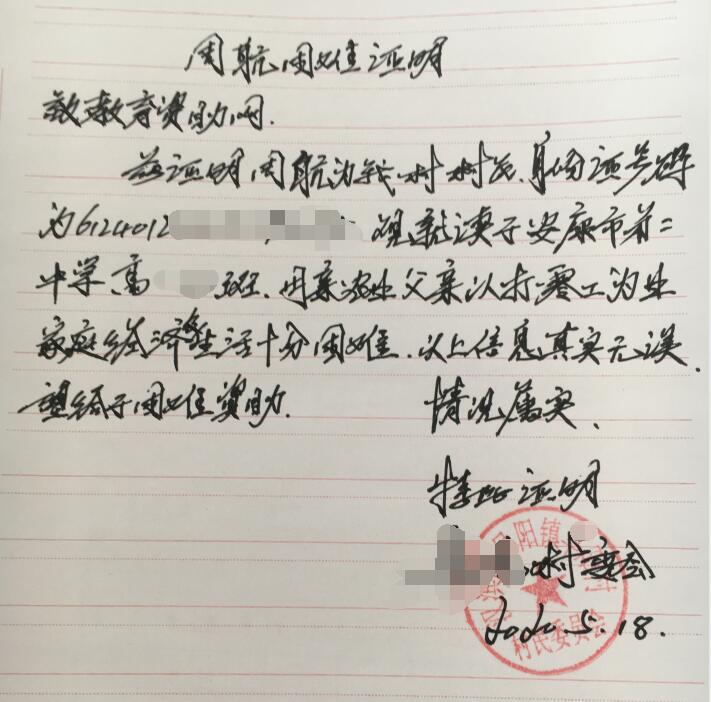 周航困难证明
致教育资助网.
兹证明周航为我村村民.身份证号码
为6124012 现就读于安康市第二
中学高 班.母亲 父亲以打零工为业
家庭经济生活十分困难.以上信息真实无误.
望给予困难资助. 情况属实.
特此证明
村委会
2020.5.18.
阳镇 村
村民委员会